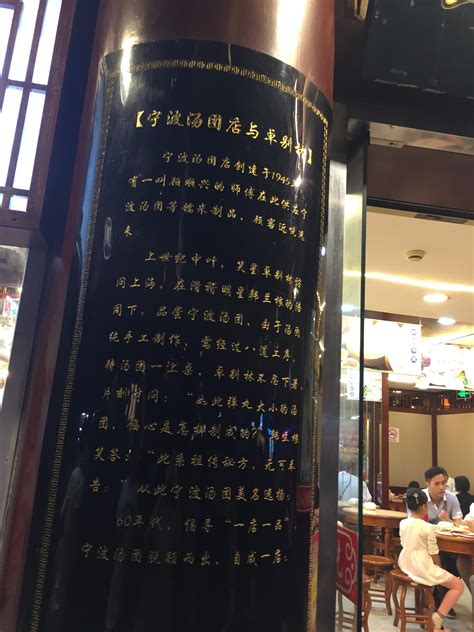 【宁波汤团店与卓别林】
宁波汤团店创建于1945
有一叫顾顺兴的师傅在此供应宁
波汤团等糯米制品，顾客远悦
来
上世纪中叶，笑星卓别林访
问上海，在滑稽明星韩兰根的陪
同下，品尝宁波汤团，由于汤团
纯手工制作，需经过八道工序，
待汤团一上桌，卓别林不忍下箸，
片刻才问：“如此弹丸大小的汤
团，馅心是怎样制成的”
笑答：“此系祖传秘方，无可奉
告。”从此宁波汤团美名远扬。
60年代，倡导“一店一品”
宁波汤团脱颖而出，自成一店。